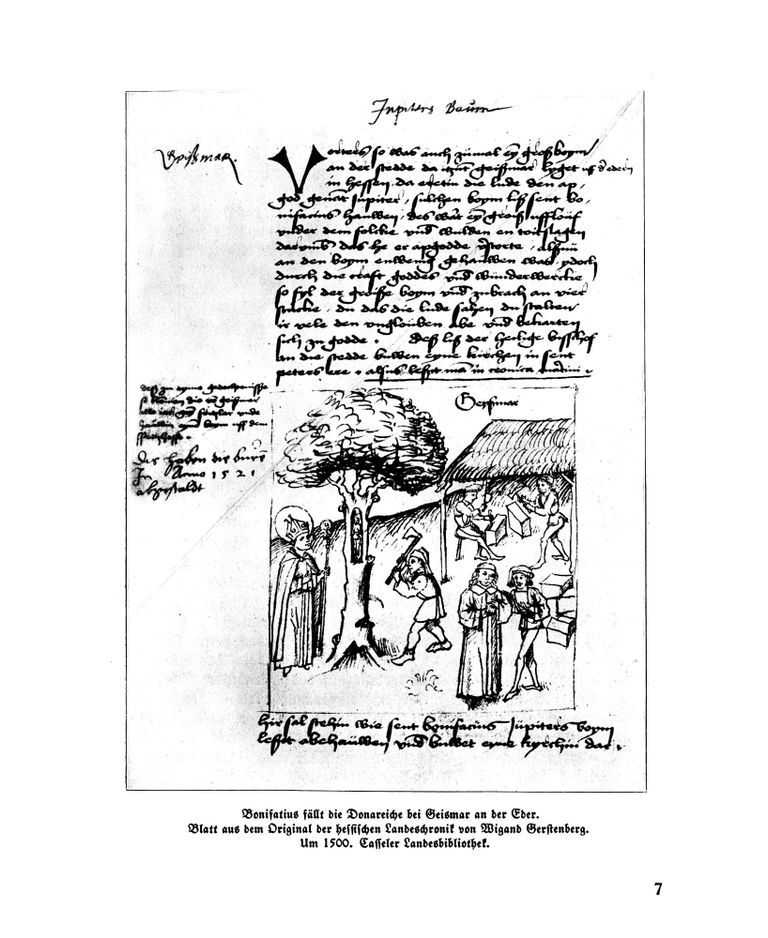 Jupiters Baum
Geißmar
Vorters so was auch zümal eyn groß boym
an der stedde da itzüt Geißmar lyget uf d' edern
in hessen da eretin die lude den ap,
god genant Jüpiter, sulchen boym liß sent bo,
nifacius hauwen, des was eyn groiß ufflouf
vnder dem folcke vnd wulden en toitslagen
darvmb das he er apgodde
an den boym enwenig gehauwen was, ydoch
durch die craft goddes vnd wunderwercke
so fyl der große boym vnd zubrach an vier
stucke, du das die lude sahen du stalten
ir vele den vnglouben abe vnd bekarten
sich zu godde. Deß liß der heilige bisschof
an die stedde buwen eyne kirchen in sent
peters ere. alsus leßet ma in cronica
deß zu eyme gedechtenisse
boym uff dem
Das haben die burē
In Anno 1521
abgestaldt
Geyssmar
hir sal stehin wie sent bonifacius Jupiters boym
leßit abehauwen vnd buwet eyne kyrchin dar.
Bonifatius fällt die Donareiche bei Geismar an der Eder.
Blatt aus dem Original der hessischen Landeschronik von Wigand Gerstenberg.
Um 1500. Casseler Landesbibliothek.
7